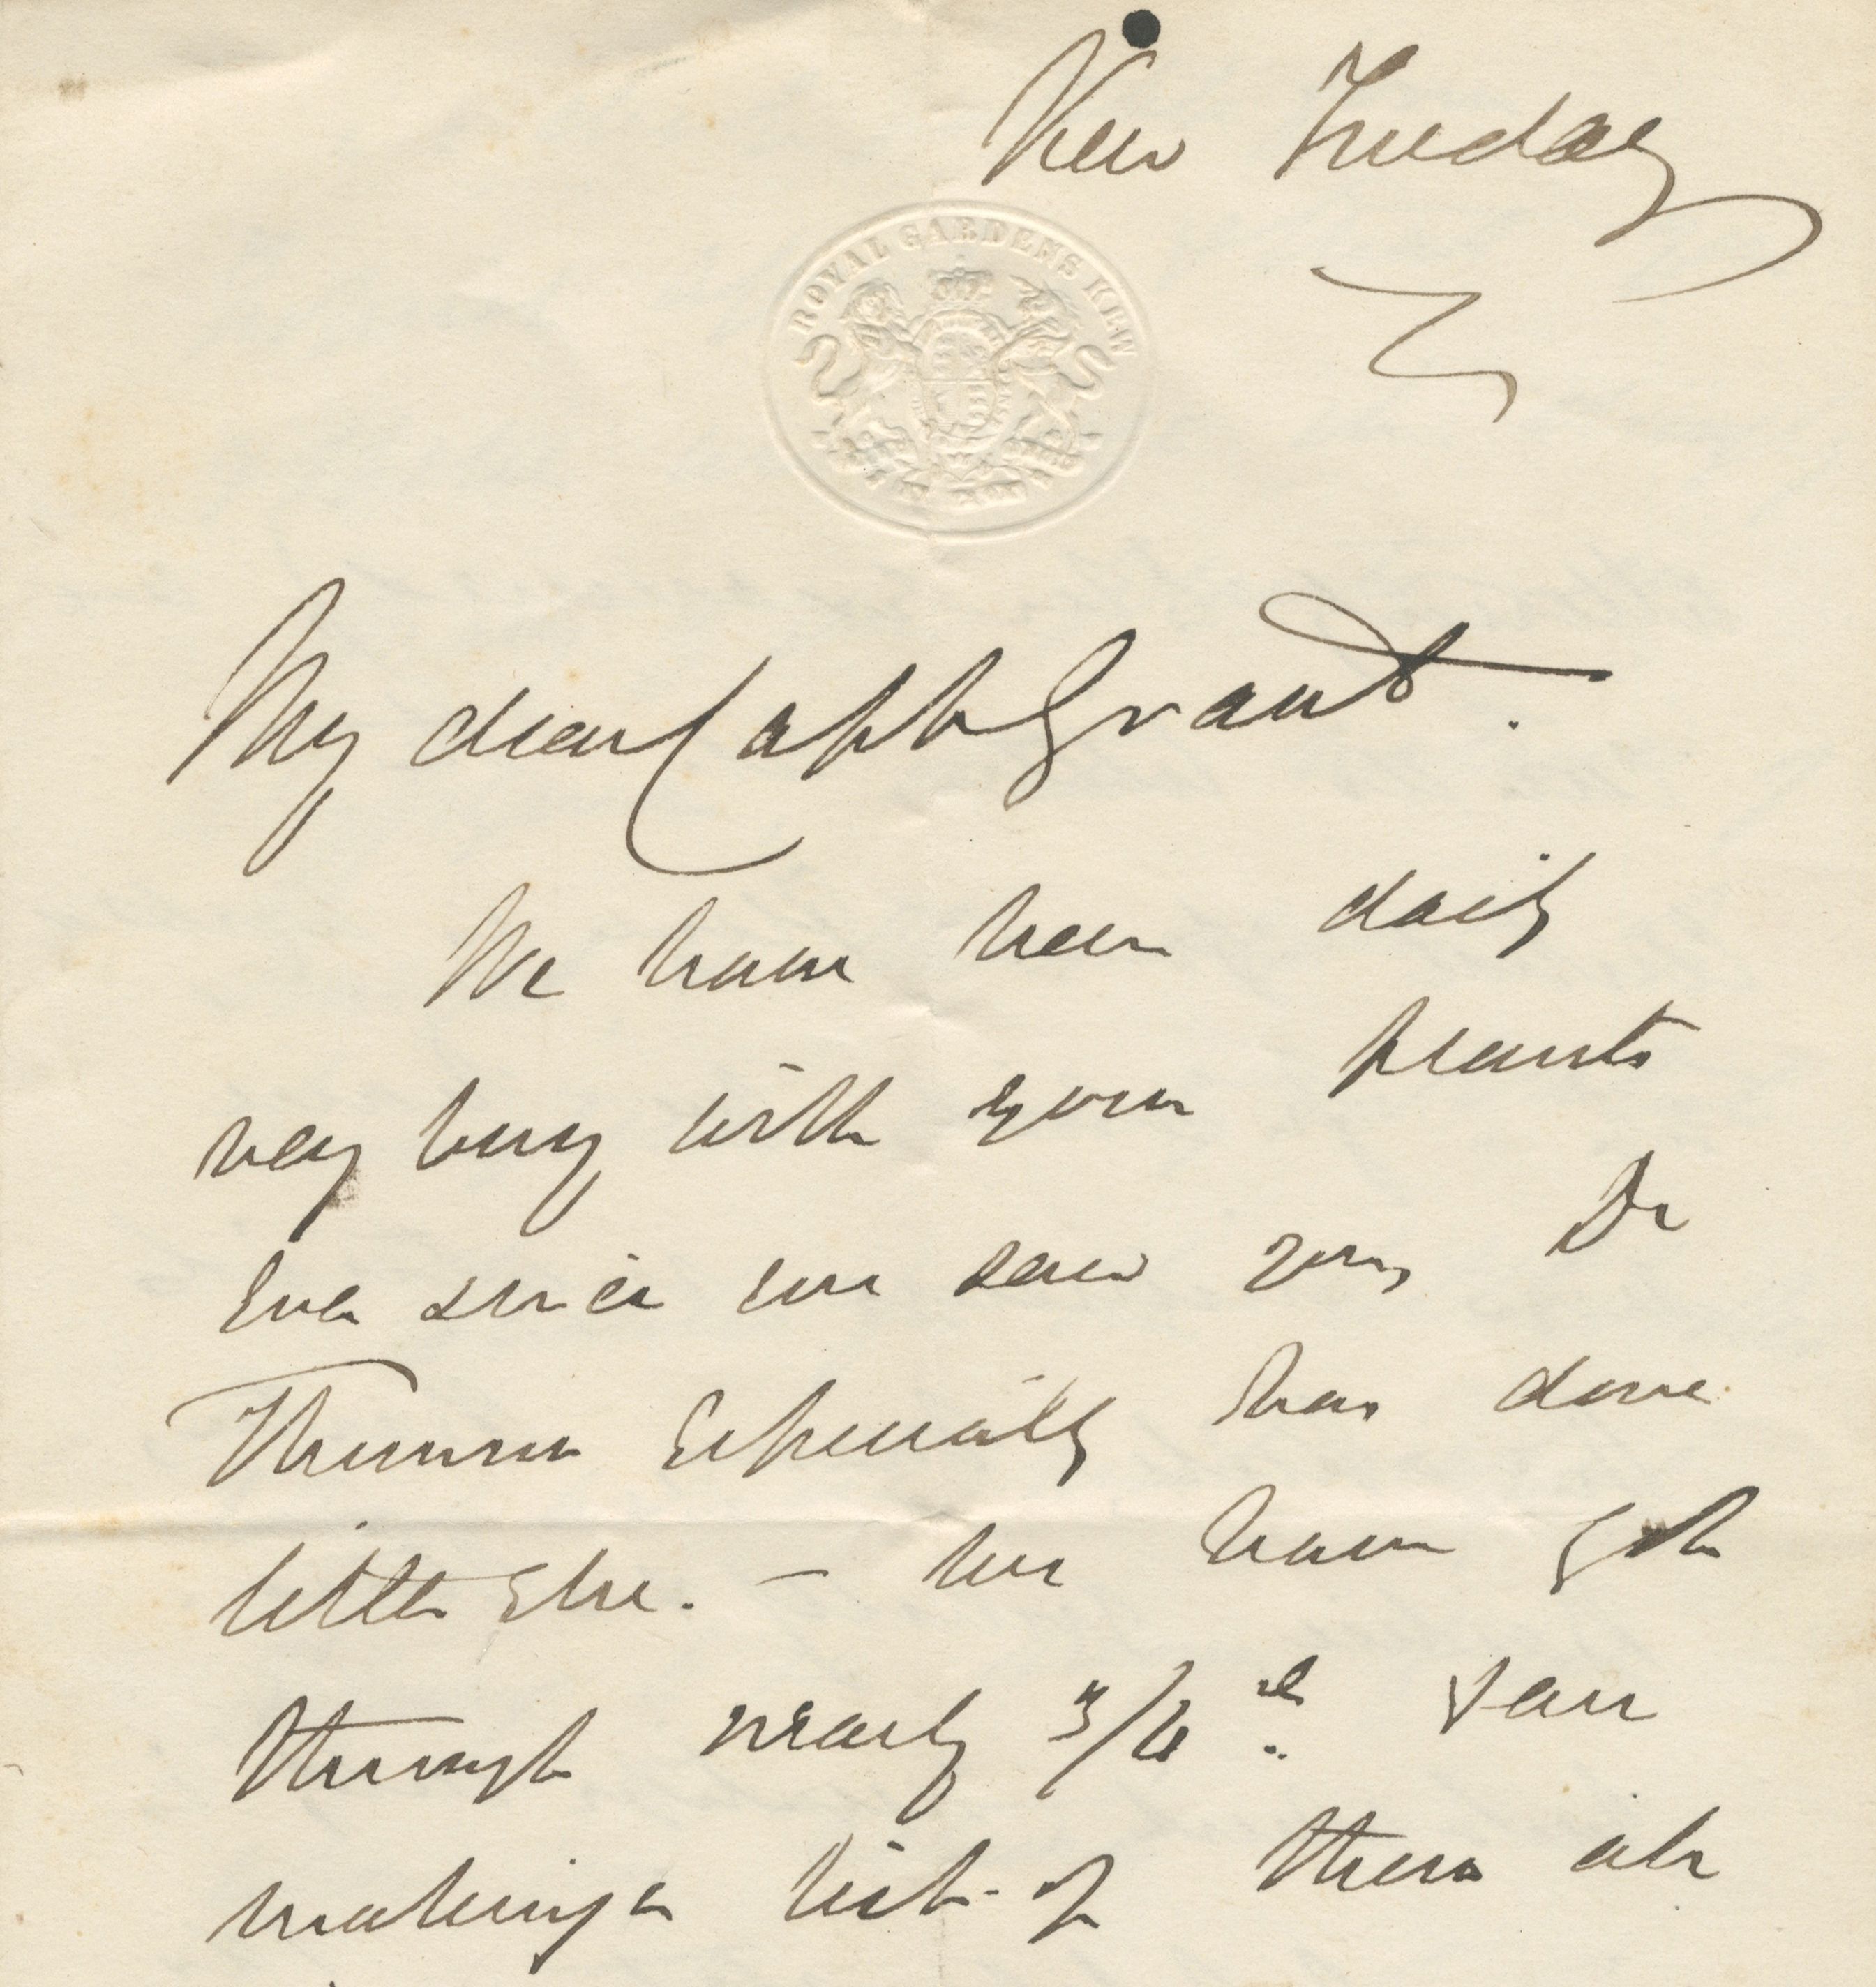 Kew Friday
ROYAL GARDENS KEW
My dear Capt Grant.
We have been daily
very busy with your plants
Ever since we saw you, Dr
Thomson Especially has done
little Else. — We have got
through nearly 3/4
making a list of them all